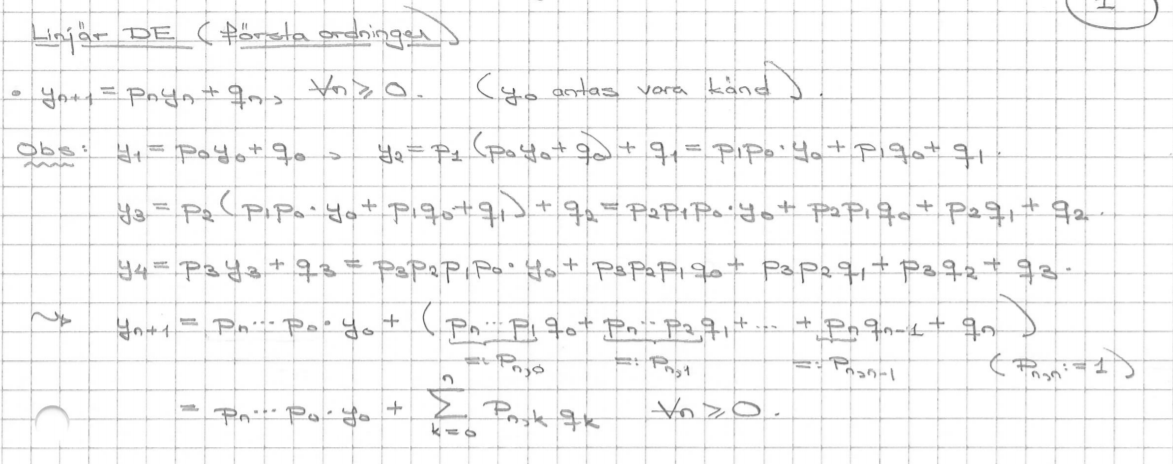 1
Linjär DE (första ordningen)
• yₙ₊₁ = pₙyₙ + qₙ, ∀n ≥ 0. (y₀ antas vara känd).
Obs: y₁ = p₀y₀ + q₀, y₂ = p₁(p₀y₀ + q₀) + q₁ = p₁p₀·y₀ + p₁q₀ + q₁.
y₃ = p₂(p₁p₀·y₀ + p₁q₀ + q₁) + q₂ = p₂p₁p₀·y₀ + p₂p₁q₀ + p₂q₁ + q₂.
y₄ = p₃y₃ + q₃ = p₃p₂p₁p₀·y₀ + p₃p₂p₁q₀ + p₃p₂q₁ + p₃q₂ + q₃.
⇝ yₙ₊₁ = pₙ⋯p₀·y₀ + (pₙ⋯p₁q₀ + pₙ⋯p₂q₁ + ⋯ + pₙqₙ₋₁ + qₙ)
=: P_{n,0} =: P_{n,1} =: P_{n,n-1} (P_{n,n} := 1)
= pₙ⋯p₀·y₀ + ∑_{k=0}^{n} P_{n,k} q_k ∀n ≥ 0.